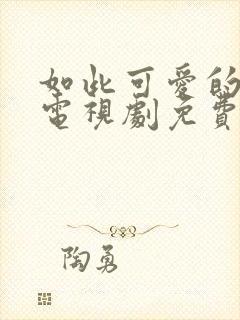 如此可愛的
電視劇免費
陶勇